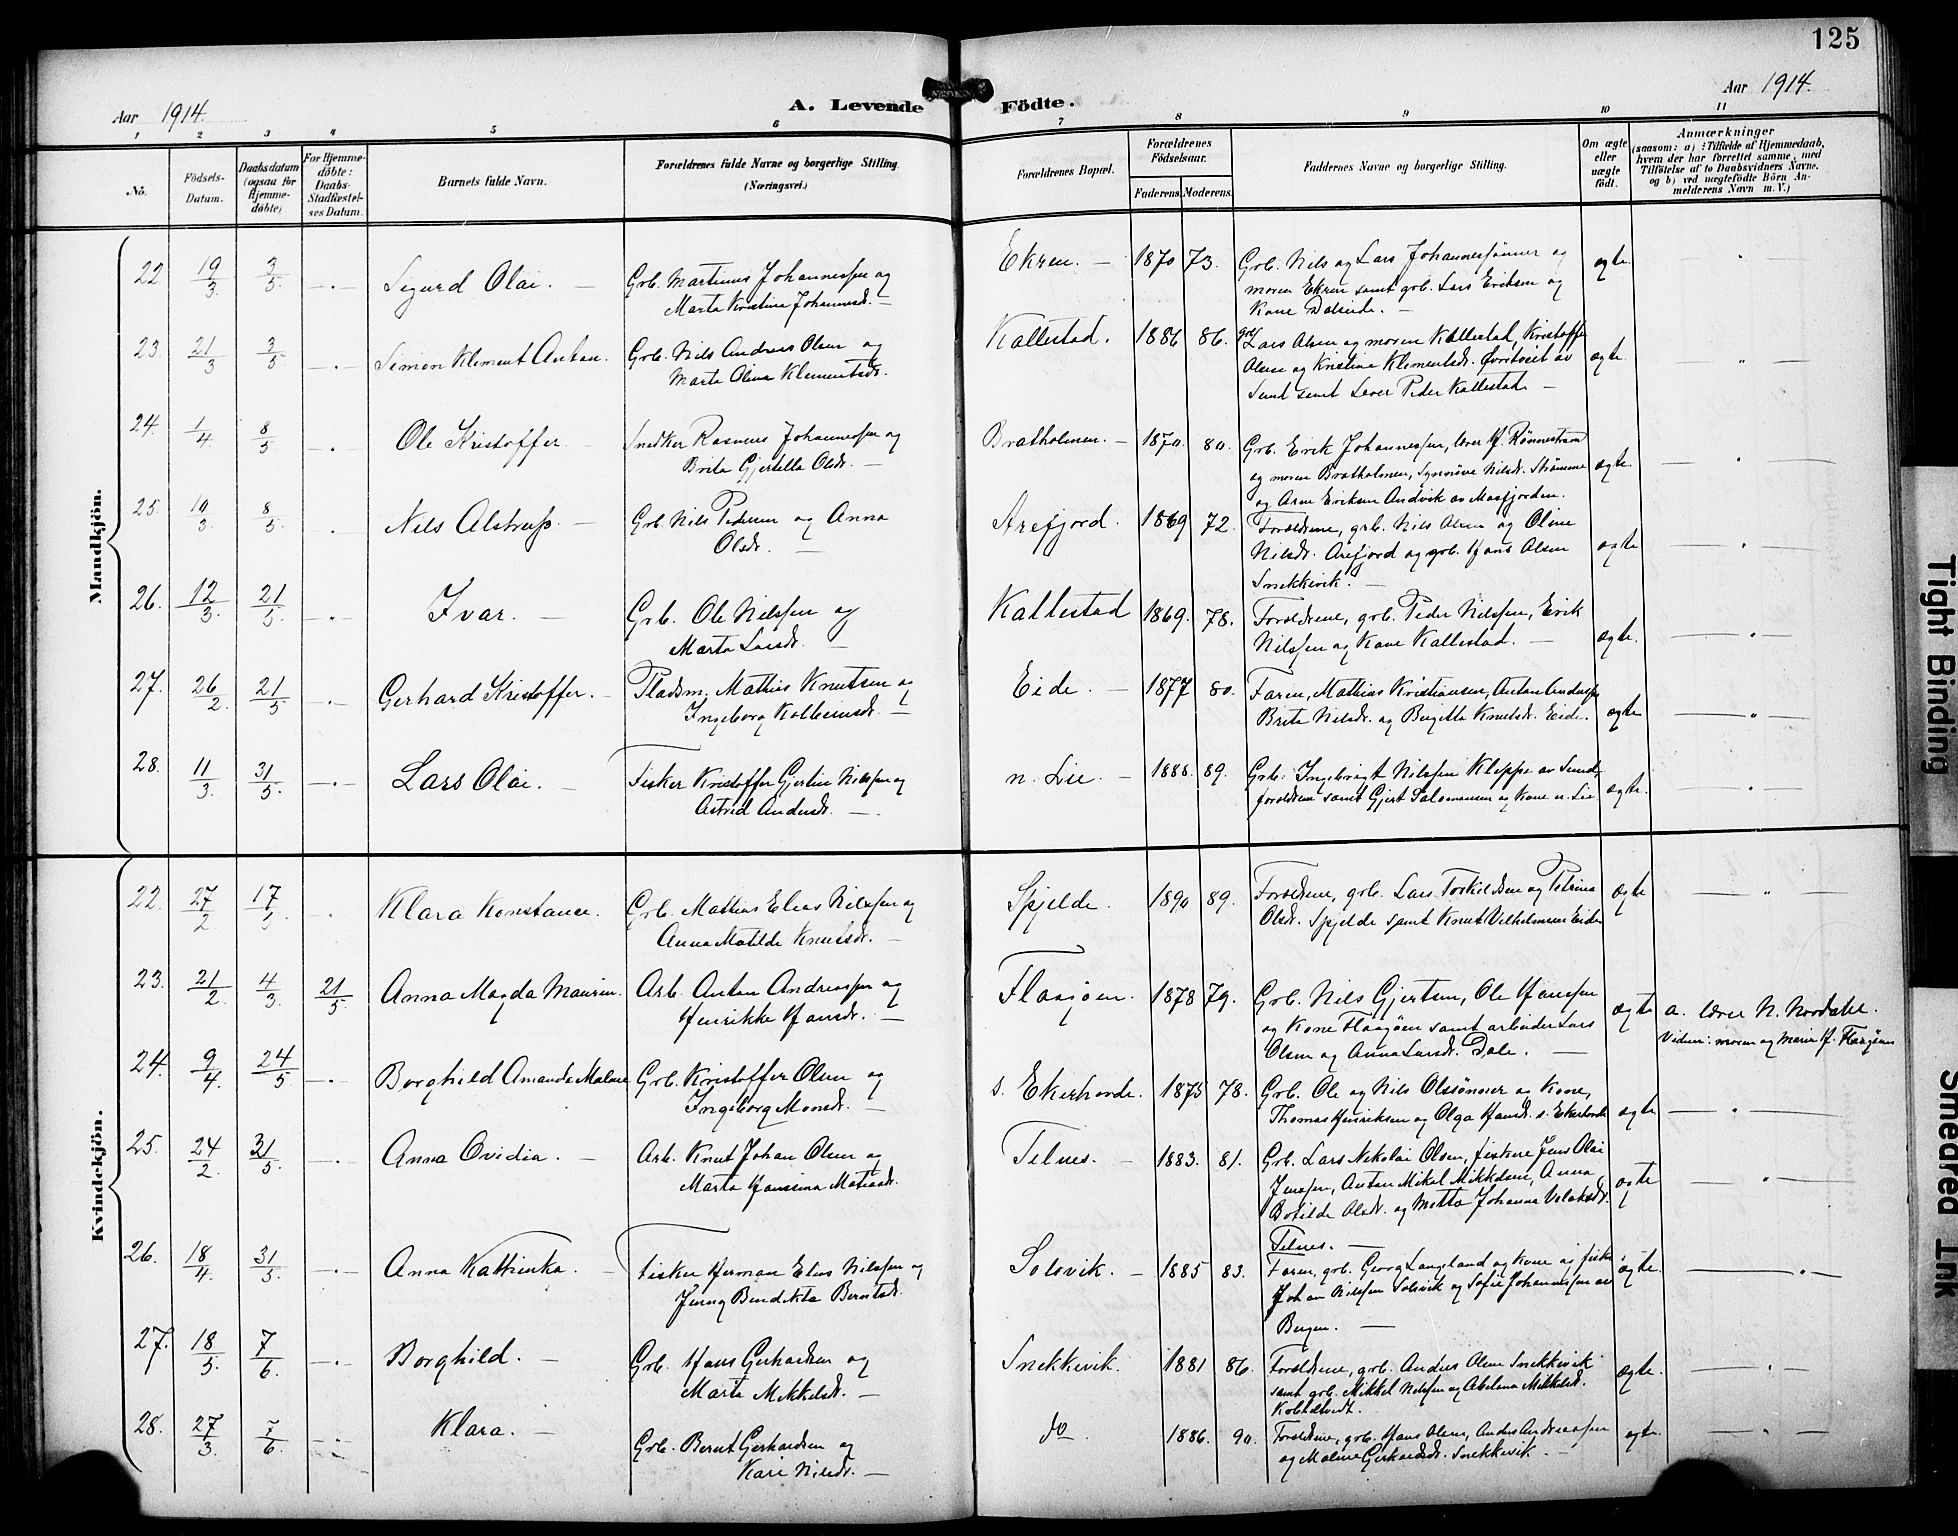 125
Aar 1914.
A. Levende Födte.
Aar 1914.
1 2 3 4 5 6 7 8 9 10 11
No.
Födsels-Datum.
Daabsdatum (ogsaa for Hjemme-döbte)
For Hjemme-döbte: Daabs-Stadfæstel-ses Datum.
Barnets fulde Navn.
Forældrenes fulde Navne og borgerlige Stilling. (Næringsvei.)
Forældrenes Bopæl.
Forældrenes Födselsaar.
Faderens. Moderens.
Faddernes Navne og borgerlige Stilling.
Om ægte eller uægte födt.
Anmærkninger
(saasom: a) i Tilfælde af Hjemmedaab, hvem der har forrettet samme, med Tilföielse af to Daabsvidners Navne. og b) ved uægtefödte Börn An-melderens Navn m. V.)
Mandkjön.
22 19/3 3/5 Sigurd Olai. Grb. Martinus Johannessen og Ekren. 1870 73. Grb. Nils og Lars Johannessønner og ægte.
Marta Kristina Johannesd. moren Ekren samt grb. Lars Eriksen og
Kone Dalseide.
23. 21/3 3/5 Simon Klement Anton. Grb. Nils Andreas Olsen og Kallestad. 1886 86. Lars Olsen og moren Kallestad, Kristoffer ægte.
Marta Olina Klementsdr. Olsen og Kristina Klementsdr. Øvretveit av
Sund samt Peder Kallestad
24. 1/4 8/5 Ole Kristoffer Snedker Rasmus Johannessen og Bratholmen. 1870. 80. Grb. Erik Johannessen, lærer H. Rönnestrand ægte.
Brita Gjertella Olsdr. og moren Bratholmen, Synnöve Nilsdr. Strømme
og Arne Eriksen Andvik av Masfjorden.
25. 10/3 8/5 Nils Alstrup. Grb. Nils Pedersen og Anna Arefjord. 1869 72. Forældrene, grb. Nils Olsen og Oline ægte
Olsdr. Nilsdr. Arefjord og grb. Hans Olsen
Snekkevik.
26. 12/3 21/5 Ivar. Grb. Ole Nilssen og Kallestad 1869. 78. Forældrene, grb. Peder Nilssen, Erik ægte.
Marta Larsdr. Nilssen og Kone Kallestad.
27. 26/2 21/5 Gerhard Kristoffer. Pladsm. Mathias Knutsen og Eide. 1877 80. Faren, Mathias Kristiansen, Anton Anderssen ægte
Ingeborg Kolbeinsdr. Brita Nilsdr. og Birgitta Knutsdr. Eide.
28. 11/3 31/5 Lars Olai. Fisker Kristoffer Gjertin Nilssen og n. Lie. 1888. 89. Grb. Ingebrigt Nilssen Kleppe av Sund, ægte.
Astrid Andersdr. forældrene samt Gjert Salomonsen og Kone n. Lie
Kvindekjön.
22. 27/2 17/5 Klara Konstance. Grb. Mathias Elias Nilssen og Spjelde. 1890 89. Forældrene, grb. Lars Torkildsen og Petrina ægte
Anna Matilde Knutsdr. Olsdr. Spjelde samt Knut Vilhelmsen Eide
23. 21/2 4/3 21/5 Anna Magda Maurin. Arb. Anton Andreassen og Flaajøen. 1878 79. Grb. Nils Gjertsen, Ole Hanssen ægte a. lærer N. Nordahl.
Henrikke Hansdr. og Kone Flaajøen samt arbeider Lars Vidner: moren og Marie H. Flaajøen
Olsen og Anna Larsdr. Dale.
24. 9/4 24/5 Borghild Amanda Malene Grb. Kristoffer Olsen og s. Ekerhovde. 1875 78. Grb. Ole og Nils Olssønner og Kone, ægte
Ingeborg Monsdr. Thomas Henriksen og Olga Hansd. s. Ekerhovde
25. 24/2 31/5 Anna Ovidia. Arb. Knut Johan Olsen og Telnes. 1883. 81. Grb. Lars Nikolai Olsen, fiskere Jens Olai ægte
Marta Hansina Matiasdr. Jenssen, Anton Mikal Mikkelsen, Anna
Botilde Olsdr. og Metta Johanna
Telnes.
26. 18/4 31/5 Anna Kathinka. Fisker Herman Elias Nilssen og Solsvik. 1885 83. Faren, grb. Georg Langeland og Kone og fisker ægte.
Jenny Bendikta Berntsd. Johan Nilssen Solsvik og Sofie Johannessen av
Bergen.
27. 18/5 7/6 Borghild. Grb. Hans Gerhardsen og Snekkevik. 1881 86. Forældrene, grb. Anders Olsen Snekkevik ægte.
Marta Mikkelsdr. samt grb. Mikkel Nilssen og Abelona Mikkelsd.
Kobbeltvedt.
28. 27/3 7/6 Klara. Grb. Bernt Gerhardsen og do 1886. 90. Forældrene, grb. Hans Olsen, Anders Andreassen ægte.
Kari Nilsdr. og Maline Gerhardsdr. Snekkevik.
Tight Binding
Smeared Ink